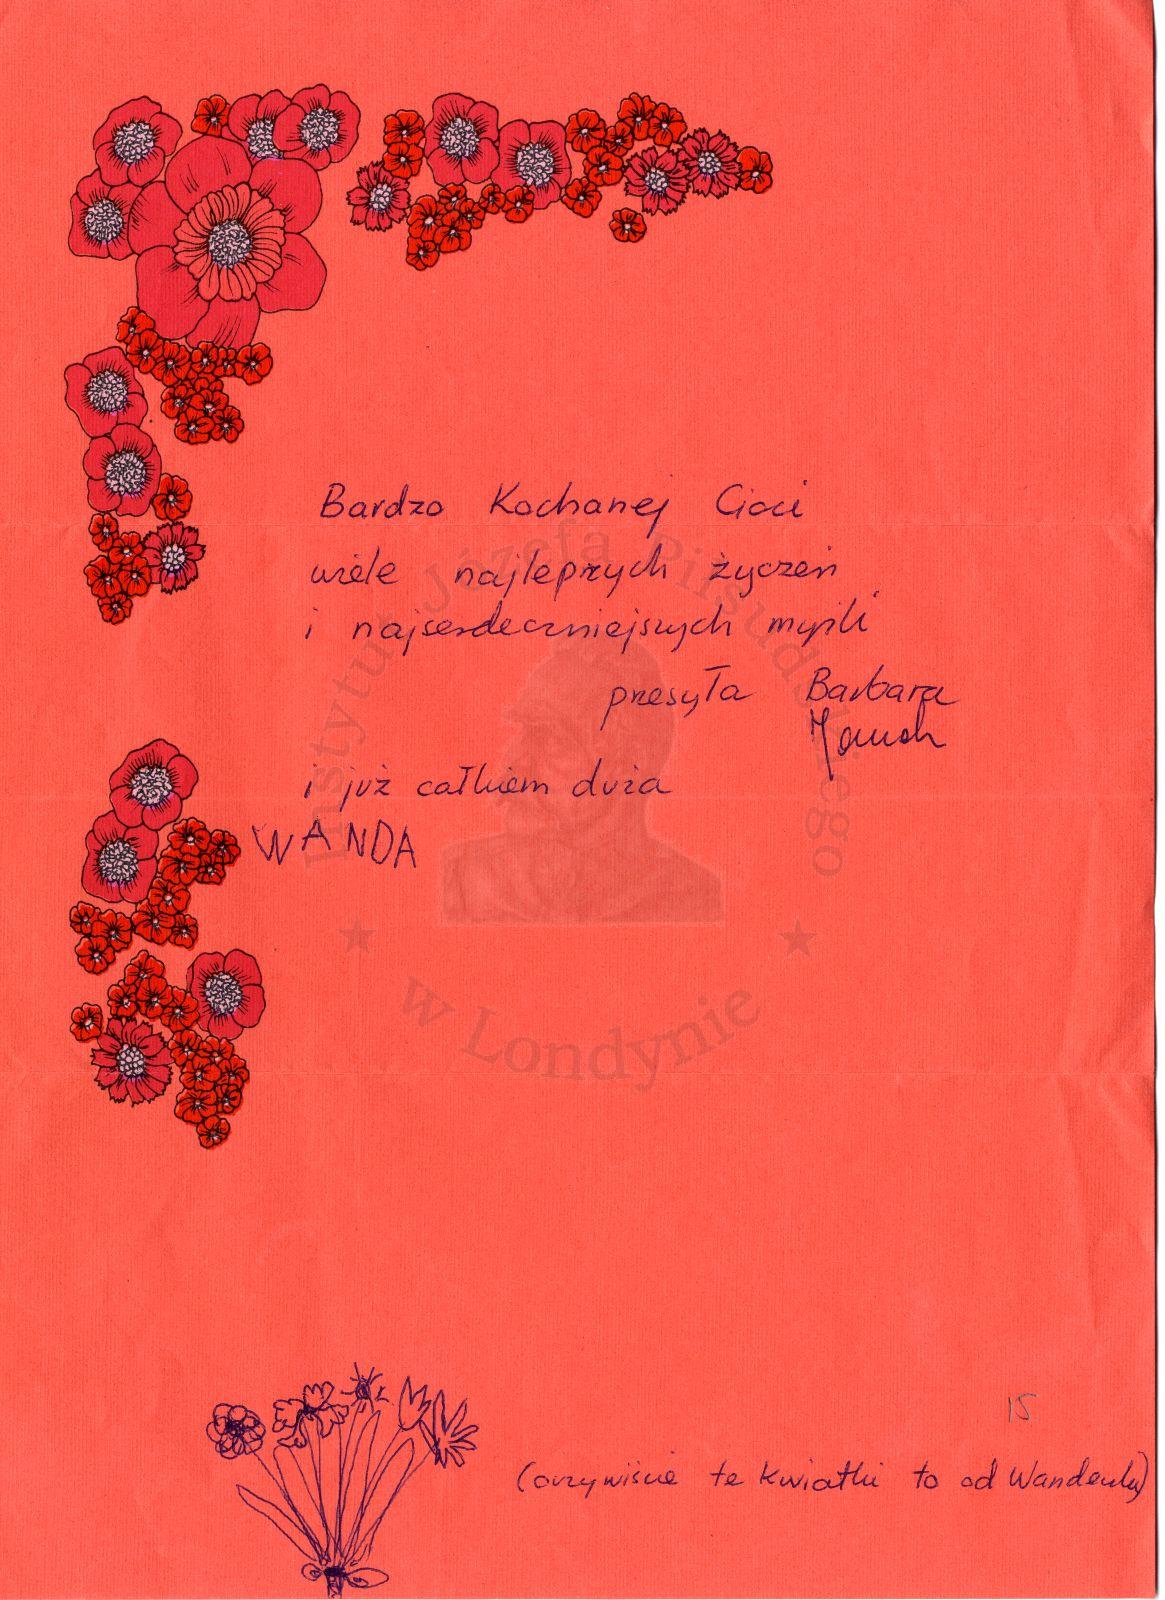 Bardzo Kochanej Cioci
wiele najlepszych życzeń
i najserdeczniejszych myśli
przesyła Barbara
i już całkiem duża
WANDA
15
(oczywiście te kwiatki to od Wandeczki)
Instytut Józefa Piłsudskiego
w Londynie